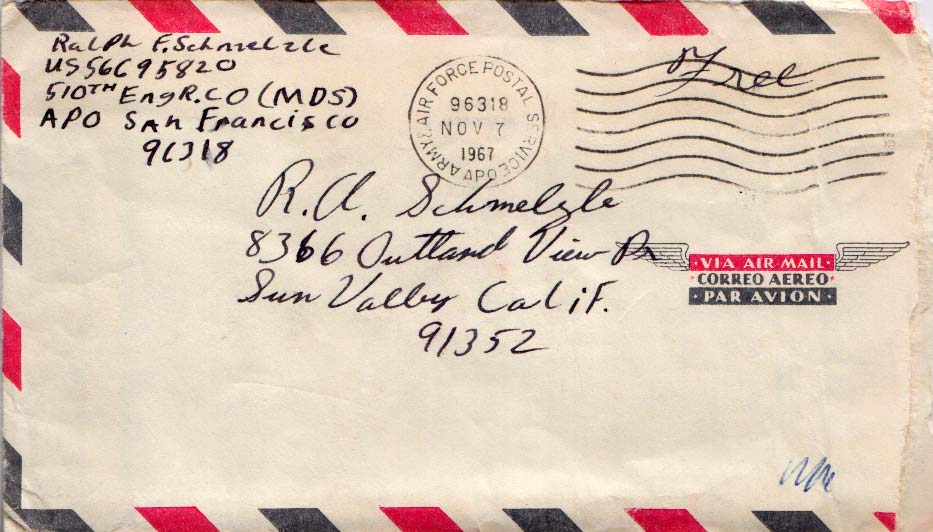 Ralph F. Schmelzle
US56695820
510TH EngR. CO (MDS)
APO San Francisco
96318
ARMY & AIR FORCE POSTAL SERVICE
APO
96318
NOV 7
1967
Free
R. A. Schmelzle
8366 Outland View Dr
Sun Valley Calif.
91352
· VIA AIR MAIL ·
· CORREO AEREO ·
· PAR AVION ·